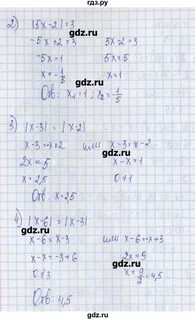 2) |5x-2| = 3
-5x+2=3 5x-2=3
-5x=1 5x=5
x=-1/5 x=1
Отв: x₁=1; x₂=-1/5
3) |x-3| = |x-2|
x-3=-x+2 или x-3=x-2
2x=5 x-x=1
x=2,5 0≠1
Отв: x=2,5
4) |x-6| = |x-3|
x-6=x-3 или x-6=-x+3
x-x=-3+6 2x=9
0≠3 x=9/2=4,5
Отв: 4,5
gdz.ru
gdz.ru
gdz.ru
gdz.ru
gdz.ru
gdz.ru
gdz.ru
gdz.ru